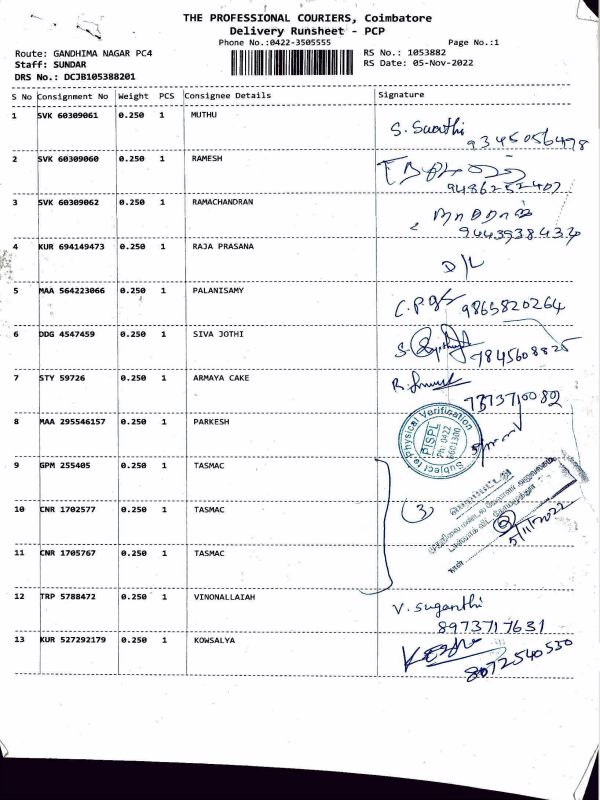 THE PROFESSIONAL COURIERS, Coimbatore
Delivery Runsheet - PCP
Phone No.:0422-3505555 Page No.:1
Route: GANDHIMA NAGAR PC4 RS No.: 1053882
Staff: SUNDAR RS Date: 05-Nov-2022
DRS No.: DCJB105388201
S No Consignment No Weight PCS Consignee Details Signature
1 SVK 60309061 0.250 1 MUTHU S. Swathi
9345056478
2 SVK 60309060 0.250 1 RAMESH
9486252407
3 SVK 60309062 0.250 1 RAMACHANDRAN
9443938434
4 KUR 694149473 0.250 1 RAJA PRASANA D/L
5 MAA 564223066 0.250 1 PALANISAMY 9865820264
6 DDG 4547459 0.250 1 SIVA JOTHI 7845608825
7 STY 59726 0.250 1 ARMAYA CAKE
8 MAA 295546157 0.250 1 PARKESH
Subject to Physical Verification
PISPL
Ph: 0422
6601300
9 GPM 255405 0.250 1 TASMAC
10 CNR 1702577 0.250 1 TASMAC 3
5/11/2022
11 CNR 1705767 0.250 1 TASMAC
12 TRP 5788472 0.250 1 VINONALLAIAH V. Suganthi
8973717631
13 KUR 527292179 0.250 1 KOWSALYA
8072540530